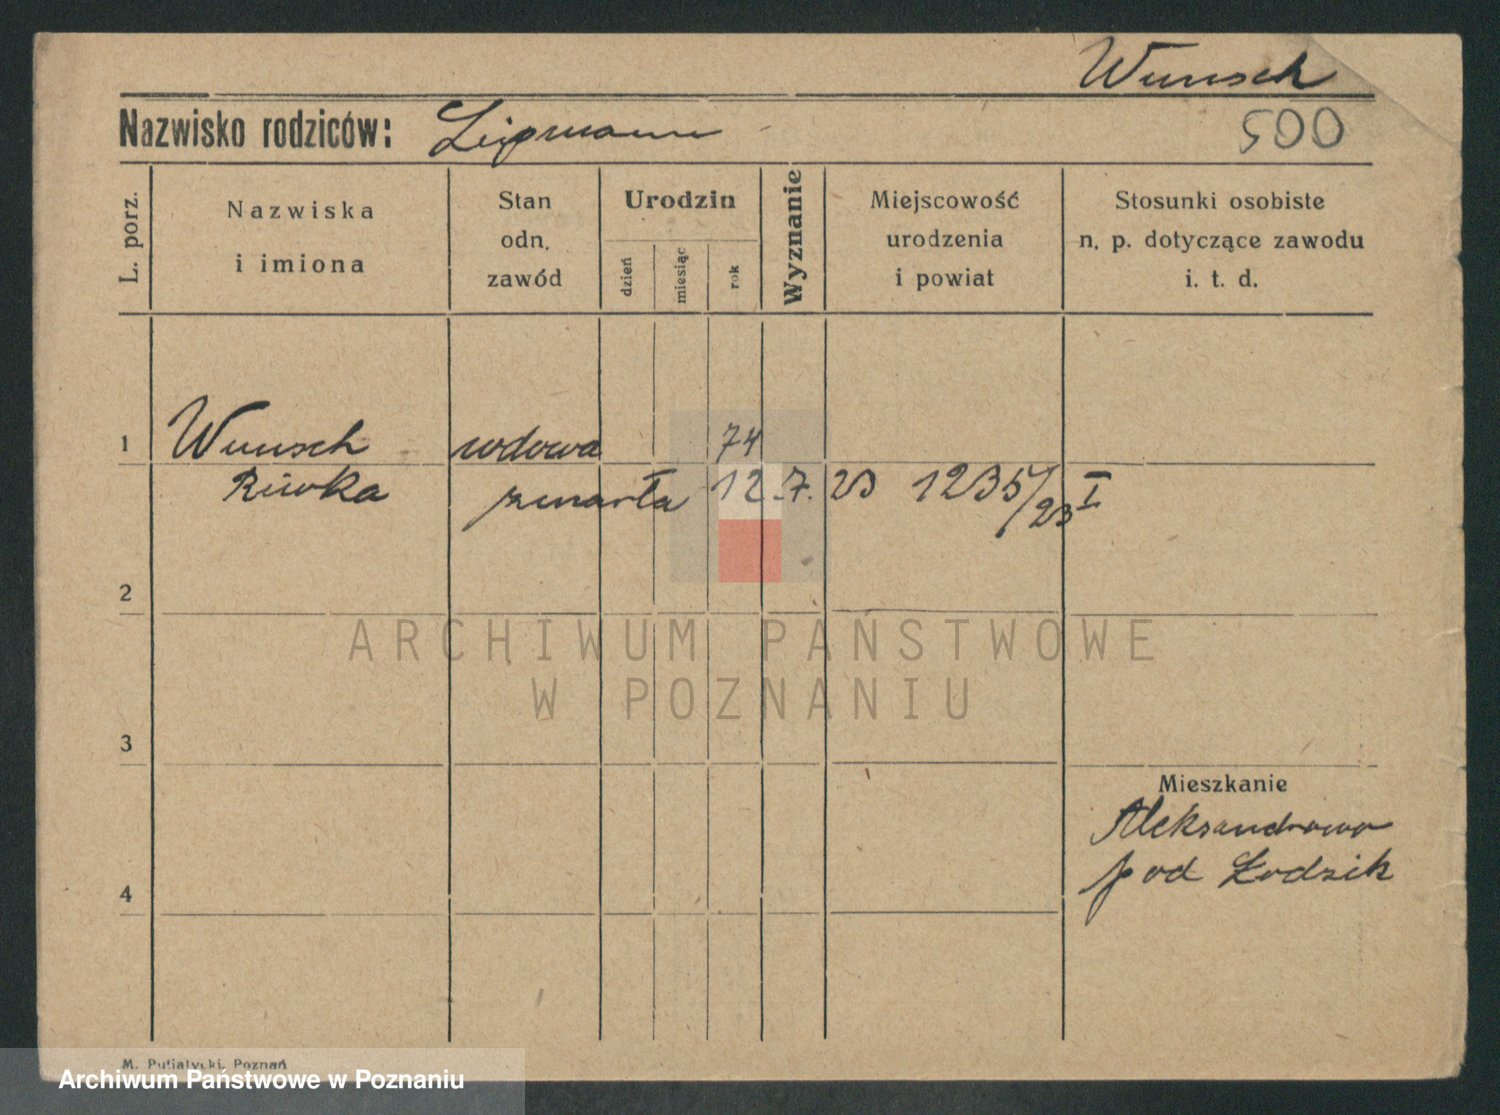 Wunsch
Nazwisko rodziców: Lipmann
500
L. porz.
Nazwiska
i imiona
Stan
odn.
zawód
Urodzin
dzień
miesiąc
rok
Wyznanie
Miejscowość
urodzenia
i powiat
Stosunki osobiste
n. p. dotyczące zawodu
i. t. d.
1 Wunsch wdowa 74
Riwka zmarła 12.7.23 1235/23 I
2
ARCHIWUM PAŃSTWOWE
W POZNANIU
3
Mieszkanie
Aleksandrowo
pod
4
M. Putiatycki, Poznań
Archiwum Państwowe w Poznaniu